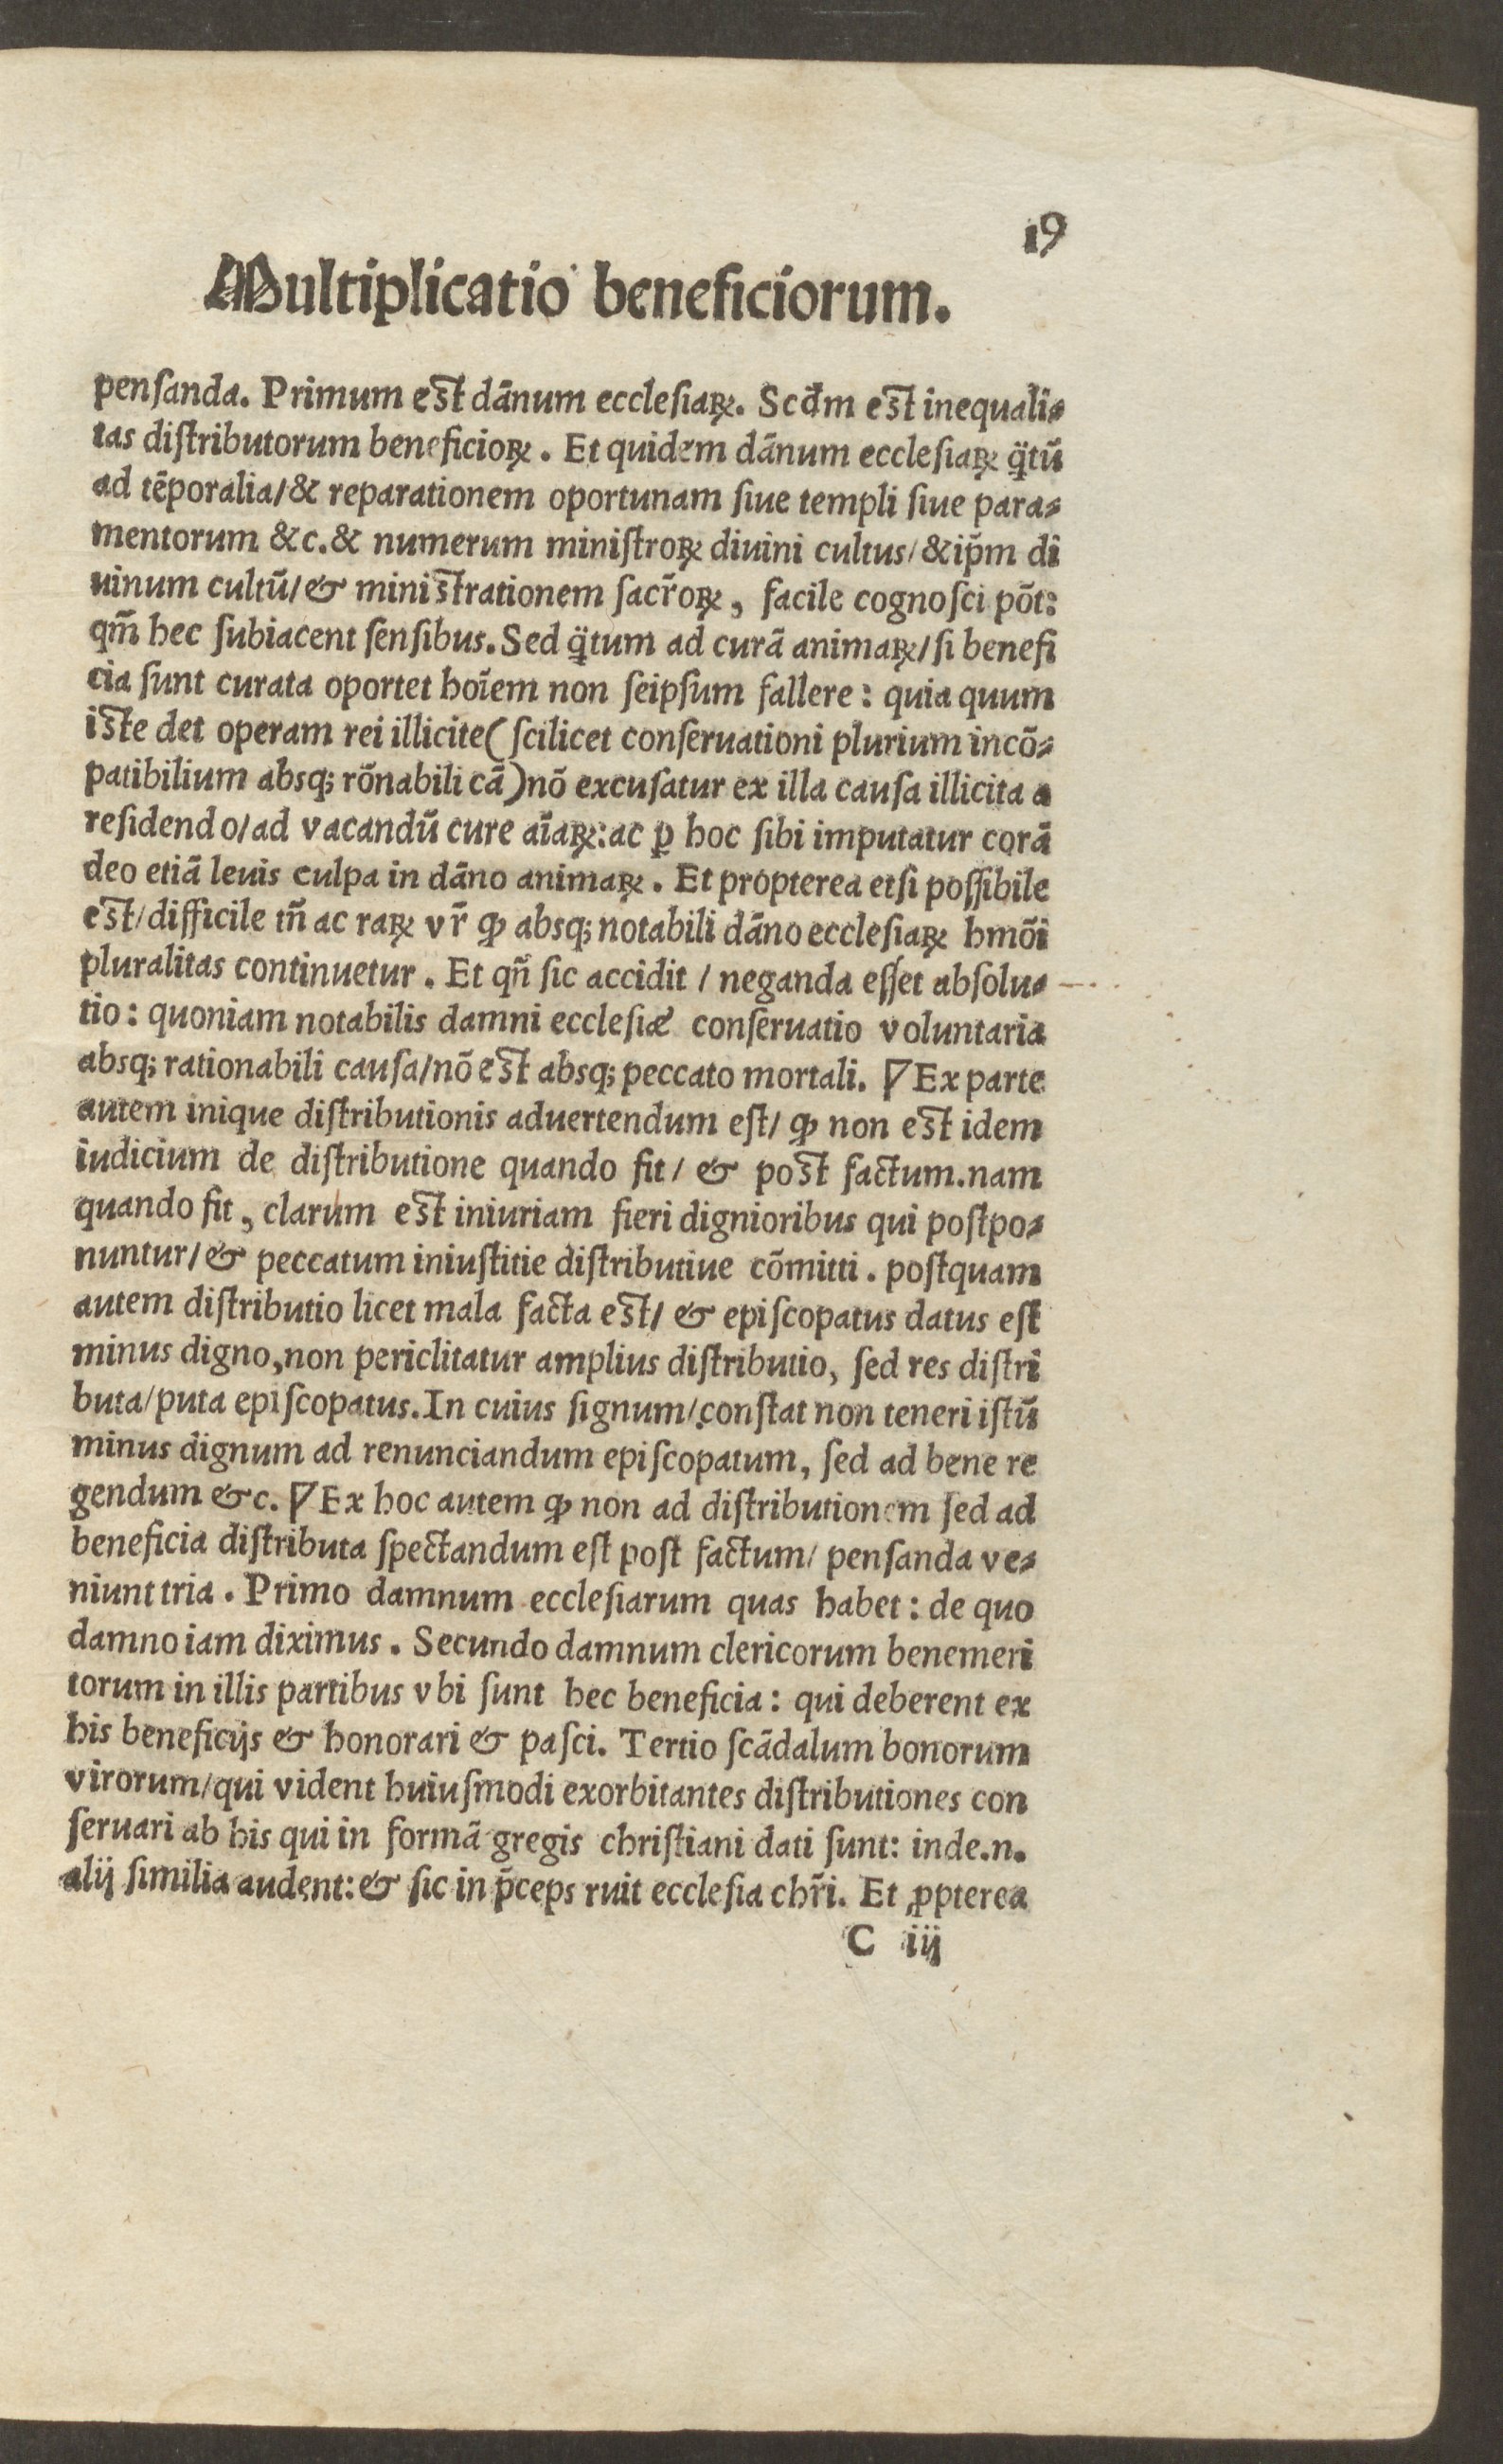 19
Multiplicatio beneficiorum.
penſanda. Primum est dānum eccleſiaꝝ. Scd̄m est inequali⸗
tas diſtributorum beneficioꝝ. Et quidem dānum eccleſiaꝝ q̈tū
ad tēporalia/& reparationem oportunam ſiue templi ſiue para⸗
mentorum &c.& numerum miniſtroꝝ diuini cultus/&ip̄m di
uinum cultū/& miniſtrationem ſacr̄oꝝ, facile cognoſci pōt:
qm̄ hec ſubiacent ſenſibus. Sed q̈tum ad curā animaꝝ/ſi benefi
cia ſunt curata oportet hoīem non ſeipſum fallere: quia quum
iste det operam rei illicite(ſcilicet conſeruationi plurium incō⸗
patibilium absq; rōnabili cā)nō excuſatur ex illa cauſa illicita a
reſidendo/ad vacandū cure aīaꝝ:ac ꝑ hoc ſibi imputatur corā
deo etiā leuis culpa in dāno animaꝝ. Et propterea etſi poſſibile
est/difficile tn̄ ac raꝝ vr̄ ꝙ absq; notabili dāno eccleſiaꝝ hmōi
pluralitas continuetur. Et qn̄ ſic accidit / neganda eſſet abſolu⸗
tio: quoniam notabilis damni eccleſiæ conſeruatio voluntaria
absq; rationabili cauſa/nō est absq; peccato mortali. ¶ Ex parte
autem inique diſtributionis aduertendum eſt/ ꝙ non est idem
iudicium de diſtributione quando fit/ & post factum.nam
quando fit, clarum est iniuriam fieri dignioribus qui poſtpo⸗
nuntur/& peccatum iniuſtitie diſtributiue cōmitti. poſtquam
autem diſtributio licet mala facta est/ & epiſcopatus datus eſt
minus digno,non periclitatur amplius diſtributio, ſed res diſtri
buta/puta epiſcopatus. In cuius ſignum/conſtat non teneri iſtū
minus dignum ad renunciandum epiſcopatum, ſed ad bene re
gendum &c. ¶ Ex hoc autem ꝙ non ad diſtributionem ſed ad
beneficia diſtributa ſpectandum eſt poſt factum/ penſanda ve⸗
niunt tria. Primo damnum eccleſiarum quas habet: de quo
damno iam diximus. Secundo damnum clericorum benemeri
torum in illis partibus vbi ſunt hec beneficia: qui deberent ex
his beneficijs & honorari & paſci. Tertio ſcādalum bonorum
virorum/qui vident huiuſmodi exorbitantes diſtributiones con
ſeruari ab his qui in formā gregis chriſtiani dati ſunt: inde.n.
alij ſimilia audent:& ſic in p̄ceps ruit eccleſia chr̄i. Et ꝓpterea
C iij